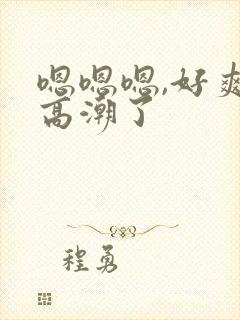 嗯嗯嗯,好爽
高潮了
程勇